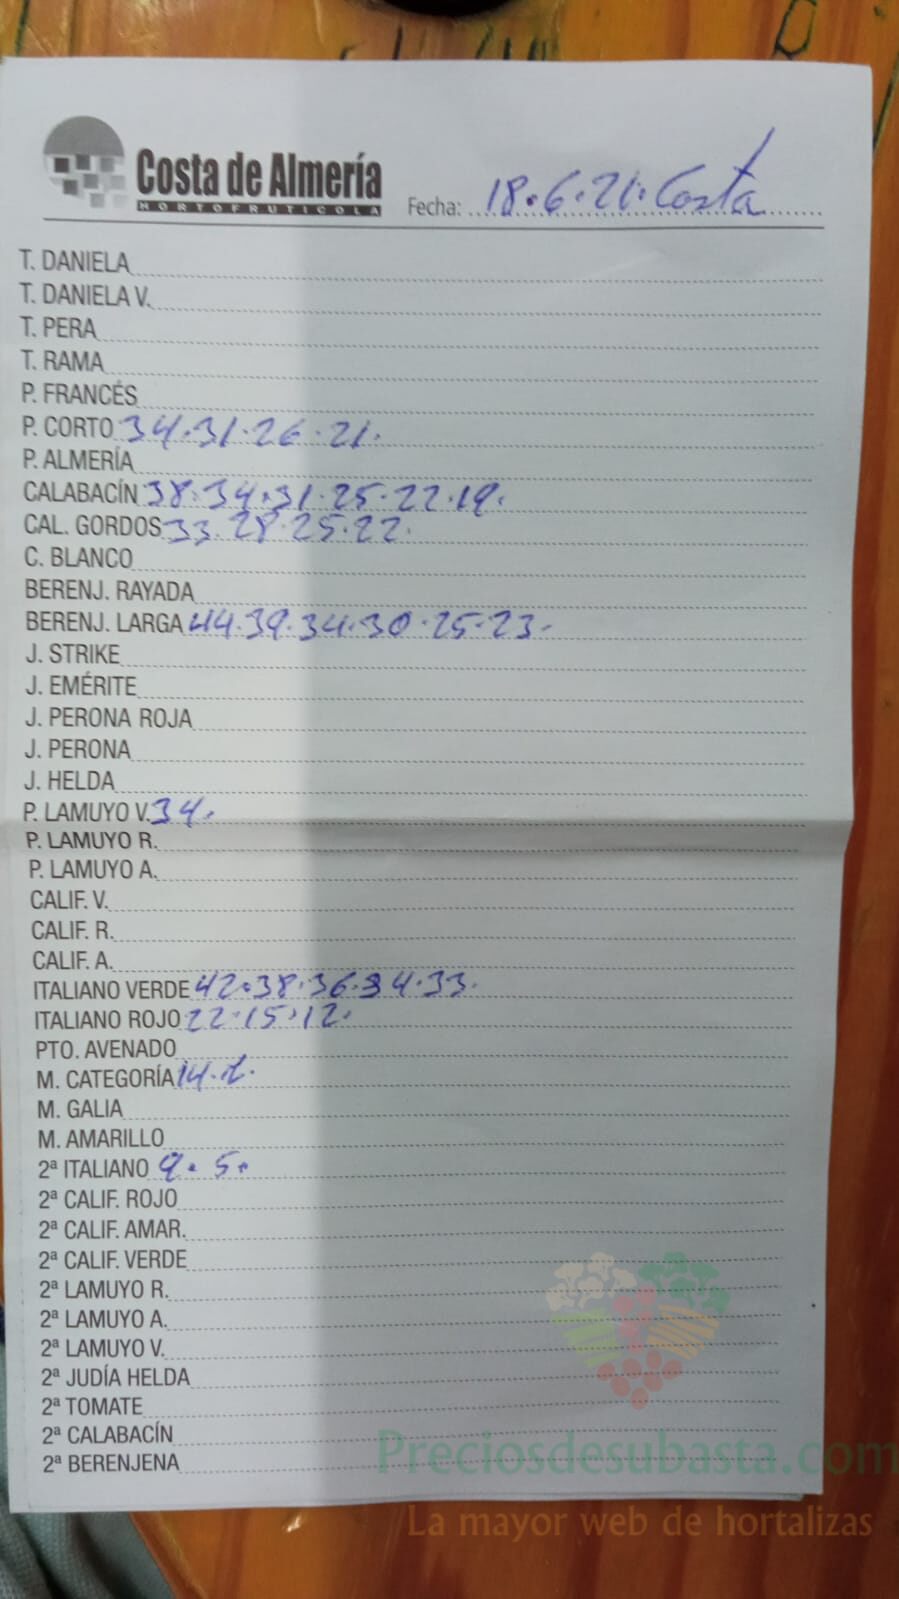 Costa de Almería
HORTOFRUTICOLA
Fecha: 18.6.21. Costa
T. DANIELA
T. DANIELA V.
T. PERA
T. RAMA
P. FRANCÉS
P. CORTO 34.31.26.21.
P. ALMERÍA
CALABACÍN 38.34.31.25.22.19.
CAL. GORDOS 33.28.25.22.
C. BLANCO
BERENJ. RAYADA
BERENJ. LARGA 44.39.34.30.25.23.
J. STRIKE
J. EMÉRITE
J. PERONA ROJA
J. PERONA
J. HELDA
P. LAMUYO V. 34.
P. LAMUYO R.
P. LAMUYO A.
CALIF. V.
CALIF. R.
CALIF. A.
ITALIANO VERDE 42.38.36.34.33.
ITALIANO ROJO 22.15.12.
PTO. AVENADO
M. CATEGORÍA 14.
M. GALIA
M. AMARILLO
2ª ITALIANO 9.5.
2ª CALIF. ROJO
2ª CALIF. AMAR.
2ª CALIF. VERDE
2ª LAMUYO R.
2ª LAMUYO A.
2ª LAMUYO V.
2ª JUDÍA HELDA
2ª TOMATE
2ª CALABACÍN
2ª BERENJENA
Preciosdesubasta.com
La mayor web de hortalizas